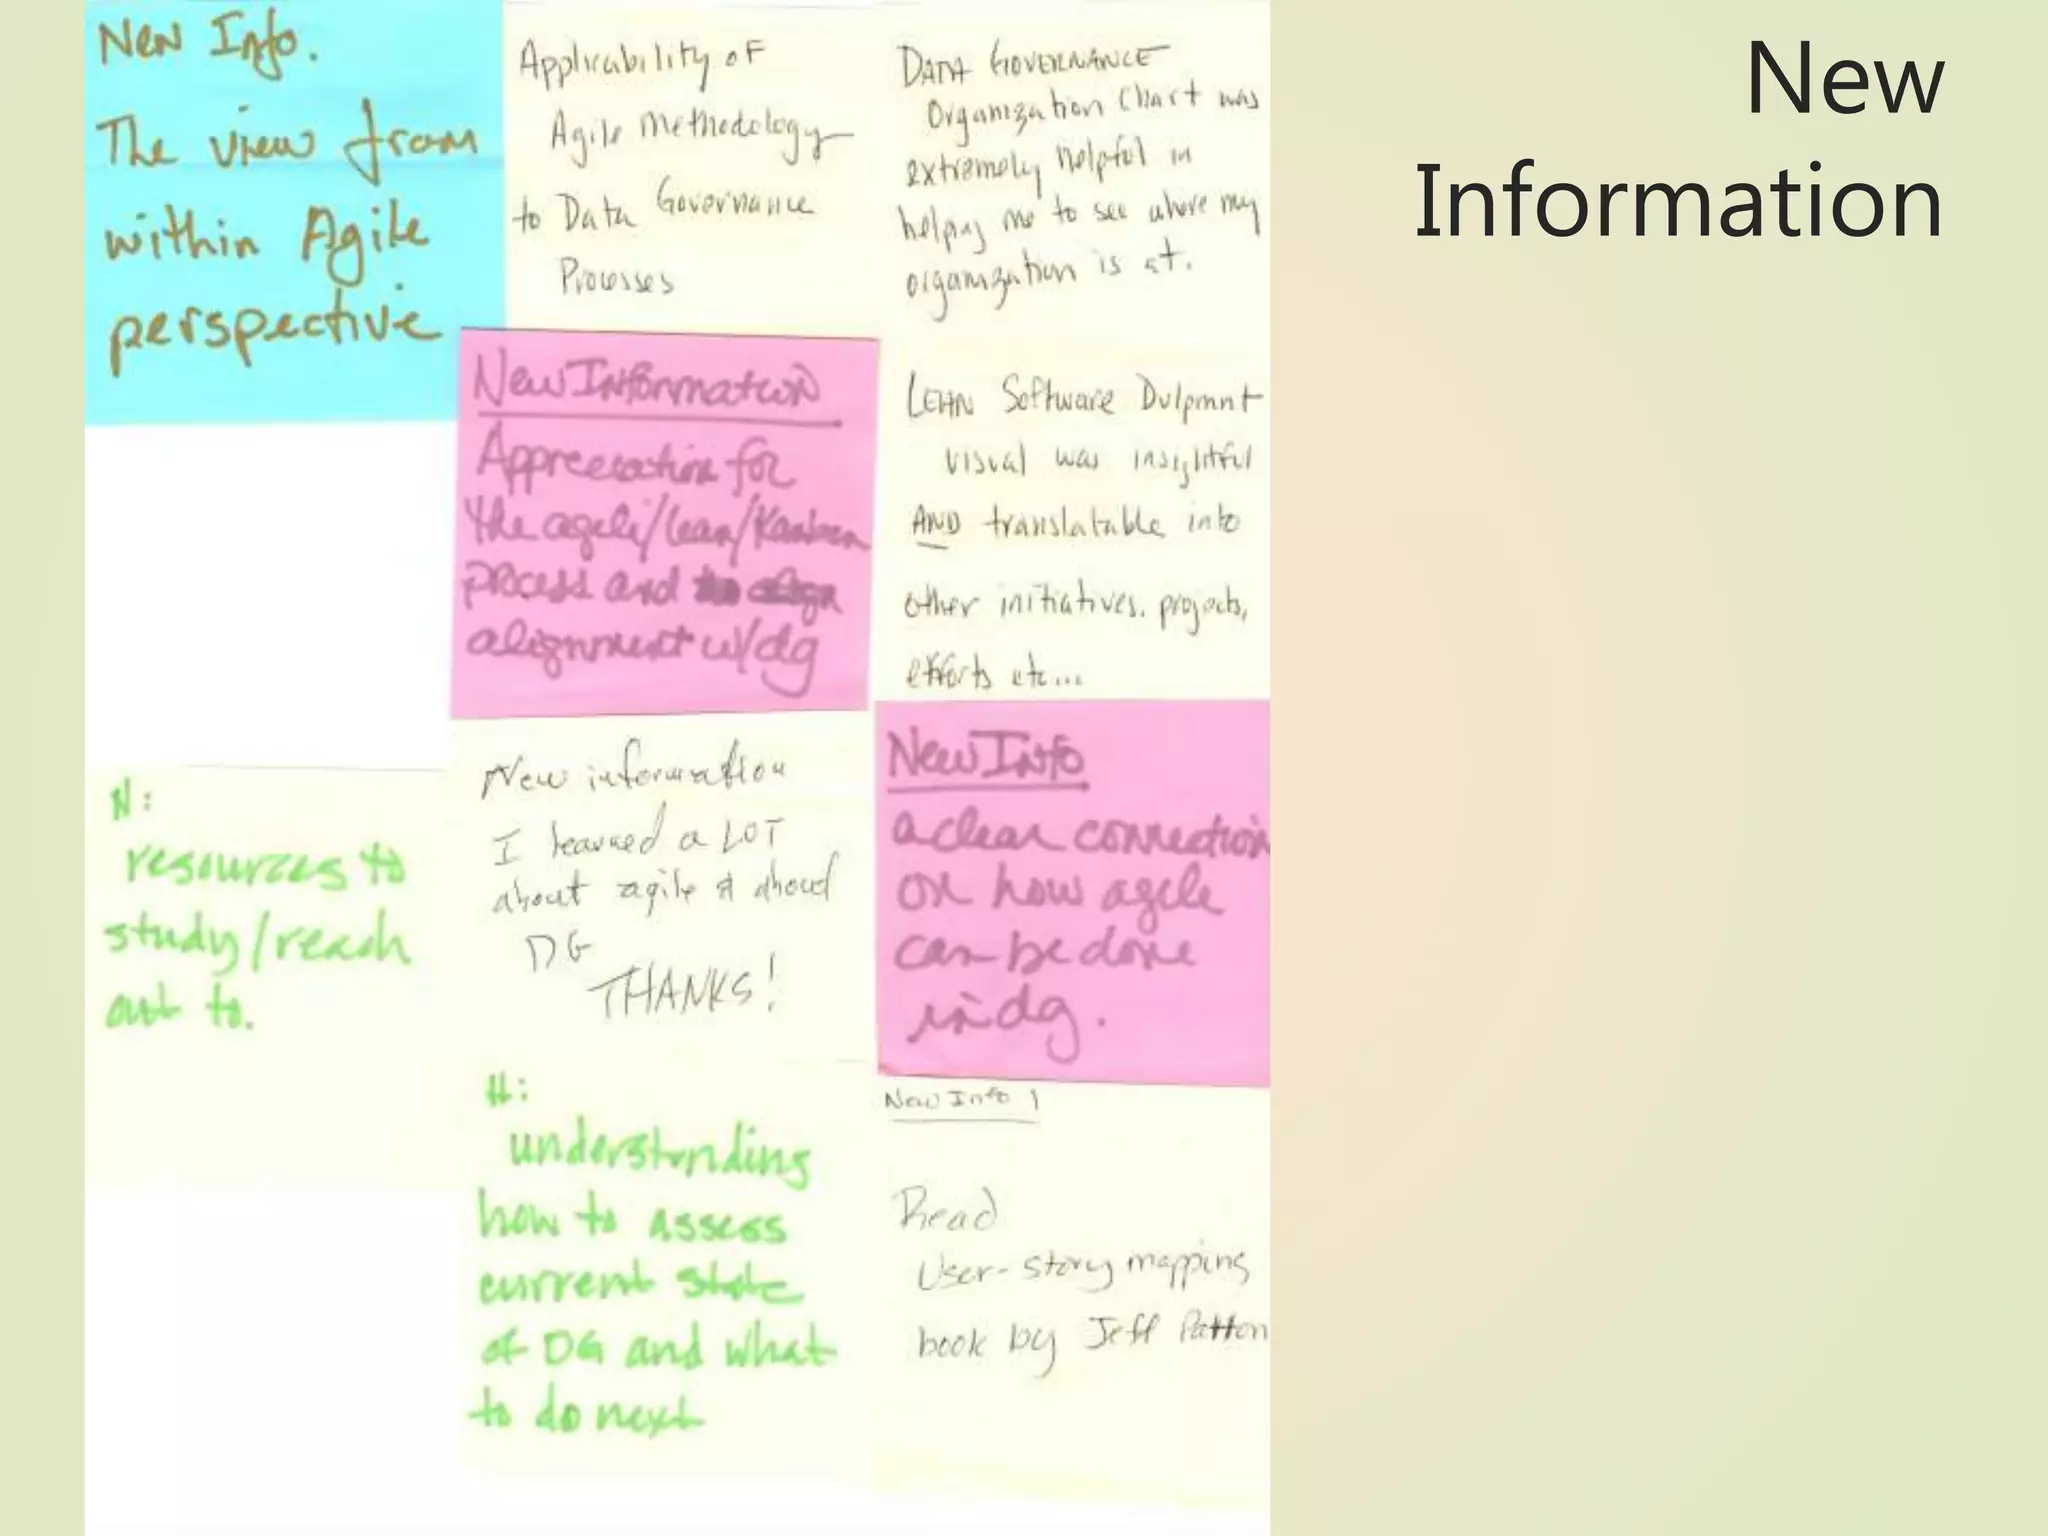 New
Information
New Info.
The view from
within Agile
perspective
Applicability of
Agile Methodology
to Data Governance
Processes
DATA GOVERNANCE
Organization Chart was
extremely helpful in
helping me to see where my
organization is at.
New Information
Appreciation for
the agile/lean/Kanban
process and
alignment w/dg
LEAN Software Dvlpmnt
visual was insightful
AND translatable into
other initiatives, projects,
efforts etc...
N:
resources to
study/reach
out to.
New information
I learned a LOT
about agile & about
DG
THANKS!
New Info
a clear connection
on how agile
can be done
in dg.
N:
understanding
how to assess
current state
of DG and what
to do next
New Info 1
Read
User-story mapping
book by Jeff Patton